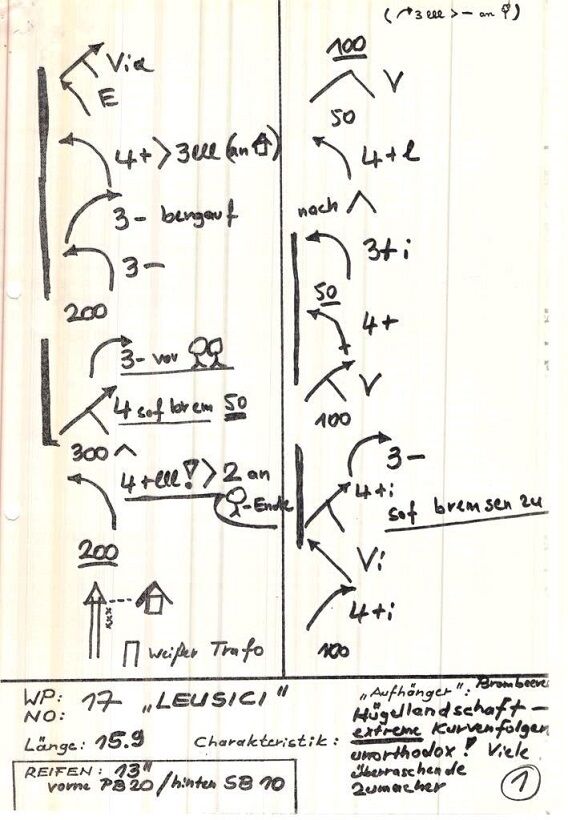 ( 3 lll > – an )
Via
E
4+ > 3 lll (an )
3- bergauf
3-
200
3- vor
4 sof brem 50
300 ^
4+ lll ! > 2 an
-Ende
200
weißer Trafo
100
V
50
4+ l
nach ^
3+ i
50
4+
V
100
3-
4+ i
sof bremsen zu
Vi
4+ i
100
WP: 17 „LEUSICI"
NO:
Länge: 15.9
Charakteristik:
REIFEN: 13"
vorne PB20 / hinten SB 10
„Aufhänger": Brombeere
Hügellandschaft –
extreme Kurvenfolgen
unorthodox! Viele
überraschende
Zumacher
1